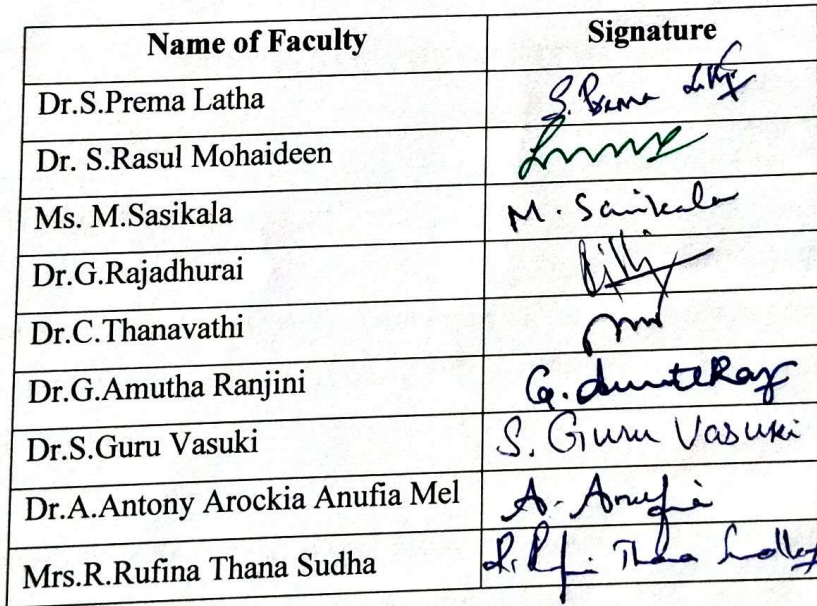 Name of Faculty Signature
Dr.S.Prema Latha S. Prema
Dr. S.Rasul Mohaideen
Ms. M.Sasikala M. Sasikala
Dr.G.Rajadhurai
Dr.C.Thanavathi
Dr.G.Amutha Ranjini
Dr.S.Guru Vasuki S. Guru Vasuki
Dr.A.Antony Arockia Anufia Mel A. Anufia
Mrs.R.Rufina Thana Sudha